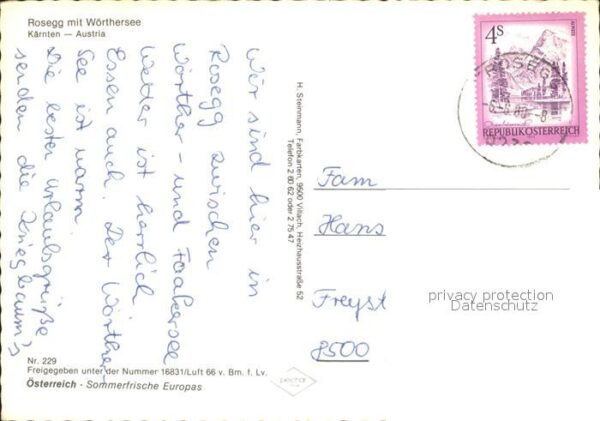 Rosegg mit Wörthersee
Kärnten — Austria
Wir sind hier in
Rosegg zwischen
Wörther- und Faakersee
Wetter ist herrlich
Essen auch. Der Wörther-
See ist warm.
Die besten Urlaubsgrüße
senden die Kriegbaum's
Nr. 229
Freigegeben unter der Nummer 16831/Luft 66 v. Bm. f. Lv.
Österreich - Sommerfrische Europas
H. Steinmann, Farbkarten, 9500 Villach, Heizhausstraße 52
Telefon 2 80 62 oder 2 75 47
4S
REPUBLIK ÖSTERREICH
ROSEGG
Fam
Hans
Freyst
8500
privacy protection
Datenschutz